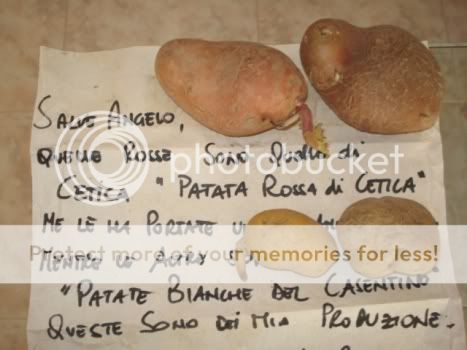 SALVE ANGELO,
QUELLE ROSSE SONO QUELLE di
CETICA "PATATA ROSSA di CETICA"
ME LE HA PORTATE
MENTRE LE
"PATATE BIANCHE DEL CASENTINO"
QUESTE SONO DEI MIA PRODUZIONE.
photobucket
Protect more of your memories for less!